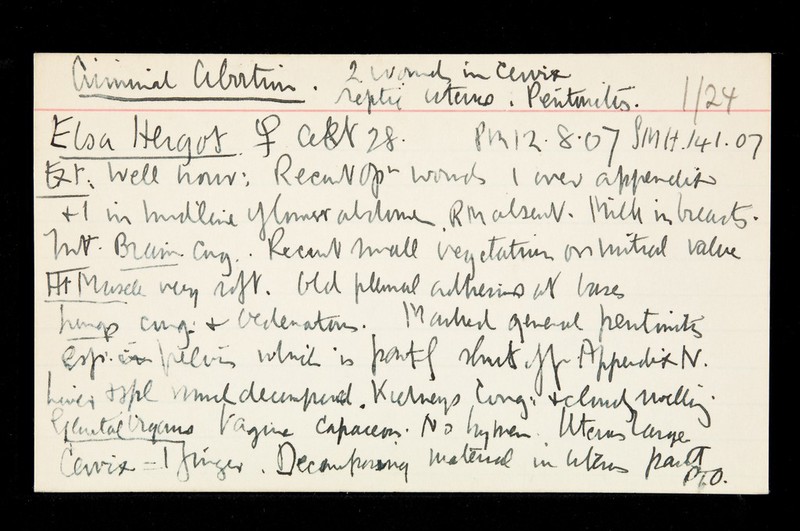 Criminal Abortion. 2 wounds in Cervix
septic uterus. Peritonitis. 1/24
Elsa Hergot ♀ aet 28. PM 12.8.07 SMH.141.07
Ext: Well nour: Recent opn wounds 1 over appendix
+ 1 in midline of lower abdomen. RM absent. Milk in breasts.
Int. Brain cong. Recent small vegetation on mitral valve
Ht Muscle very soft. Old pleural adhesions at bases
Lungs cong: + oedematous. Marked general peritonitis
esp: in pelvis which is partly shut off. Appendix N.
Liver + spl much decomposed. Kidneys Cong: + cloudy swelling.
Genital organs Vagina capacious. No hymen. Uterus large
Cervix = 1 finger. Decomposing material in uterus part
P.T.O.